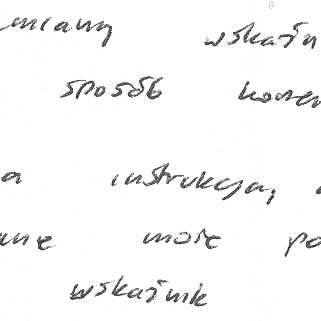 zmiany wskaźn
sposób konse
a instrukcja,
ane może po
wskaźnik